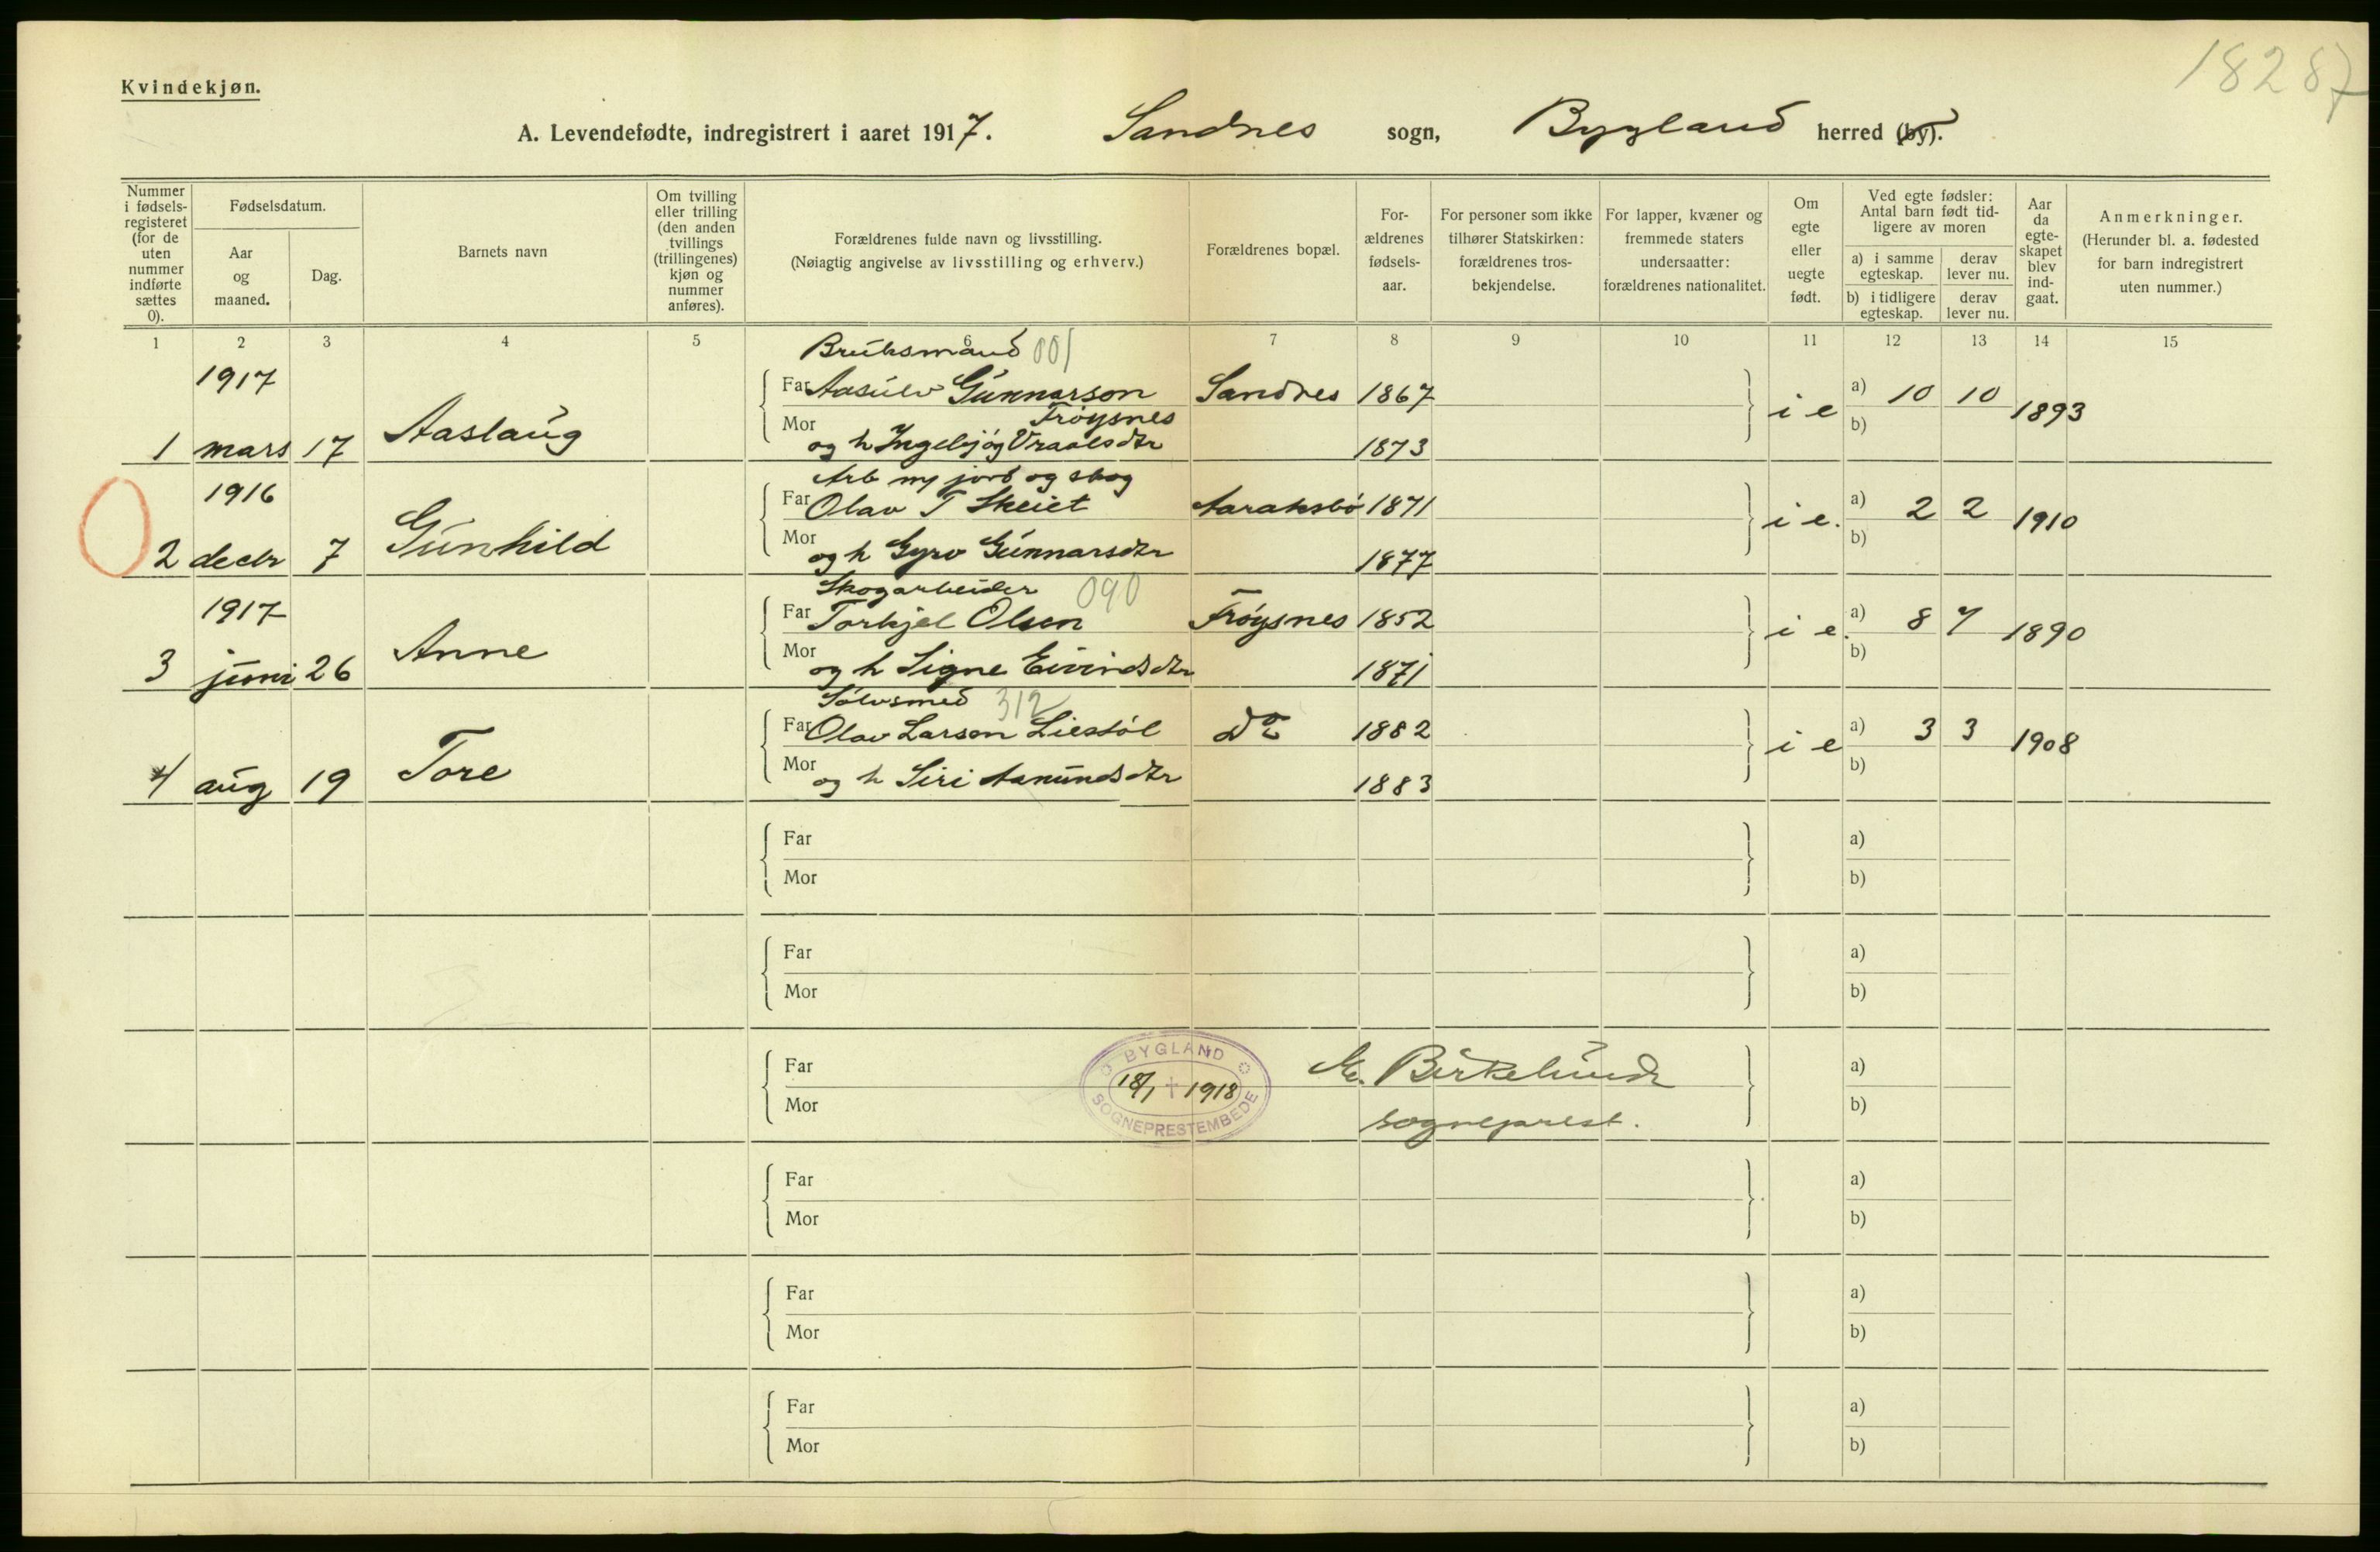 18287
Kvindekjøn.
A. Levendefødte, indregistrert i aaret 1917. Sandnes sogn, Bygland herred (by).
Nummer i fødsels-registeret (for de uten nummer indførte sættes 0).
Fødselsdatum.
Aar og maaned.
Dag.
Barnets navn
Om tvilling eller trilling (den anden tvillings (trillingenes) kjøn og nummer anføres).
Forældrenes fulde navn og livsstilling.
(Nøiagtig angivelse av livsstilling og erhverv.)
Forældrenes bopæl.
For-ældrenes fødsels-aar.
For personer som ikke tilhører Statskirken: forældrenes tros-bekjendelse.
For lapper, kvæner og fremmede staters undersaatter: forældrenes nationalitet.
Om egte eller uegte født.
Ved egte fødsler: Antal barn født tid-ligere av moren
a) i samme egteskap.
derav lever nu.
b) i tidligere egteskap.
derav lever nu.
Aar da egte-skapet blev ind-gaat.
Anmerkninger.
(Herunder bl. a. fødested for barn indregistrert uten nummer.)
1 2 3 4 5 6 7 8 9 10 11 12 13 14 15
Bruksmand 001
1917
Far Aasulv Gunnarson Sandnes 1867 a) 10 10
Frøysnes
1 mars 17 Aaslaug Mor og h Ingebjøg Vraalsdtr 1873 i e b) 1893
Arb ny jord og skog
1916
Far Olav T Skeiet Aaraksbø 1871 a) 2 2
2 decbr 7 Gunhild Mor og h Gyro Gunnarsdtr 1877 i e. b) 1910
Skogarbeider 090
1917
Far Torkjel Olsen Frøysnes 1852 a) 8 7
3 juni 26 Anne Mor og h Signe Eivindsdtr 1871 i e. b) 1890
Sølvsmed 312
Far Olav Larsen Liestøl do 1882 a) 3 3
4 aug 19 Tore Mor og h Siri Aanundsdtr 1883 i e b) 1908
Far a)
Mor b)
Far a)
Mor b)
BYGLAND
18/1 1918
SOGNEPRESTEMBEDE
Far Birkelund a)
Mor sogneprest. b)
Far a)
Mor b)
Far a)
Mor b)
Far a)
Mor b)